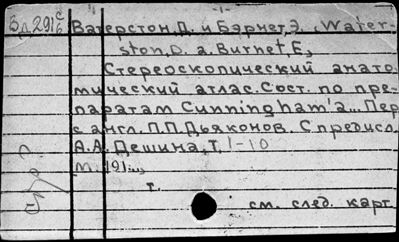 Зд291 с/6 Ватерстон,Д. и Бэрнет,Э. Water-
ston,D. a. Burnet,E,
Стереоскопический анато
мический атлас. Сост. по пре-
паратам Cunningham'a... Пер
с англ. П.П.Дьяконов. С предисл.
А.А.Дешина,Т, 1-10
м. 191...,
т.
см. след. карт.